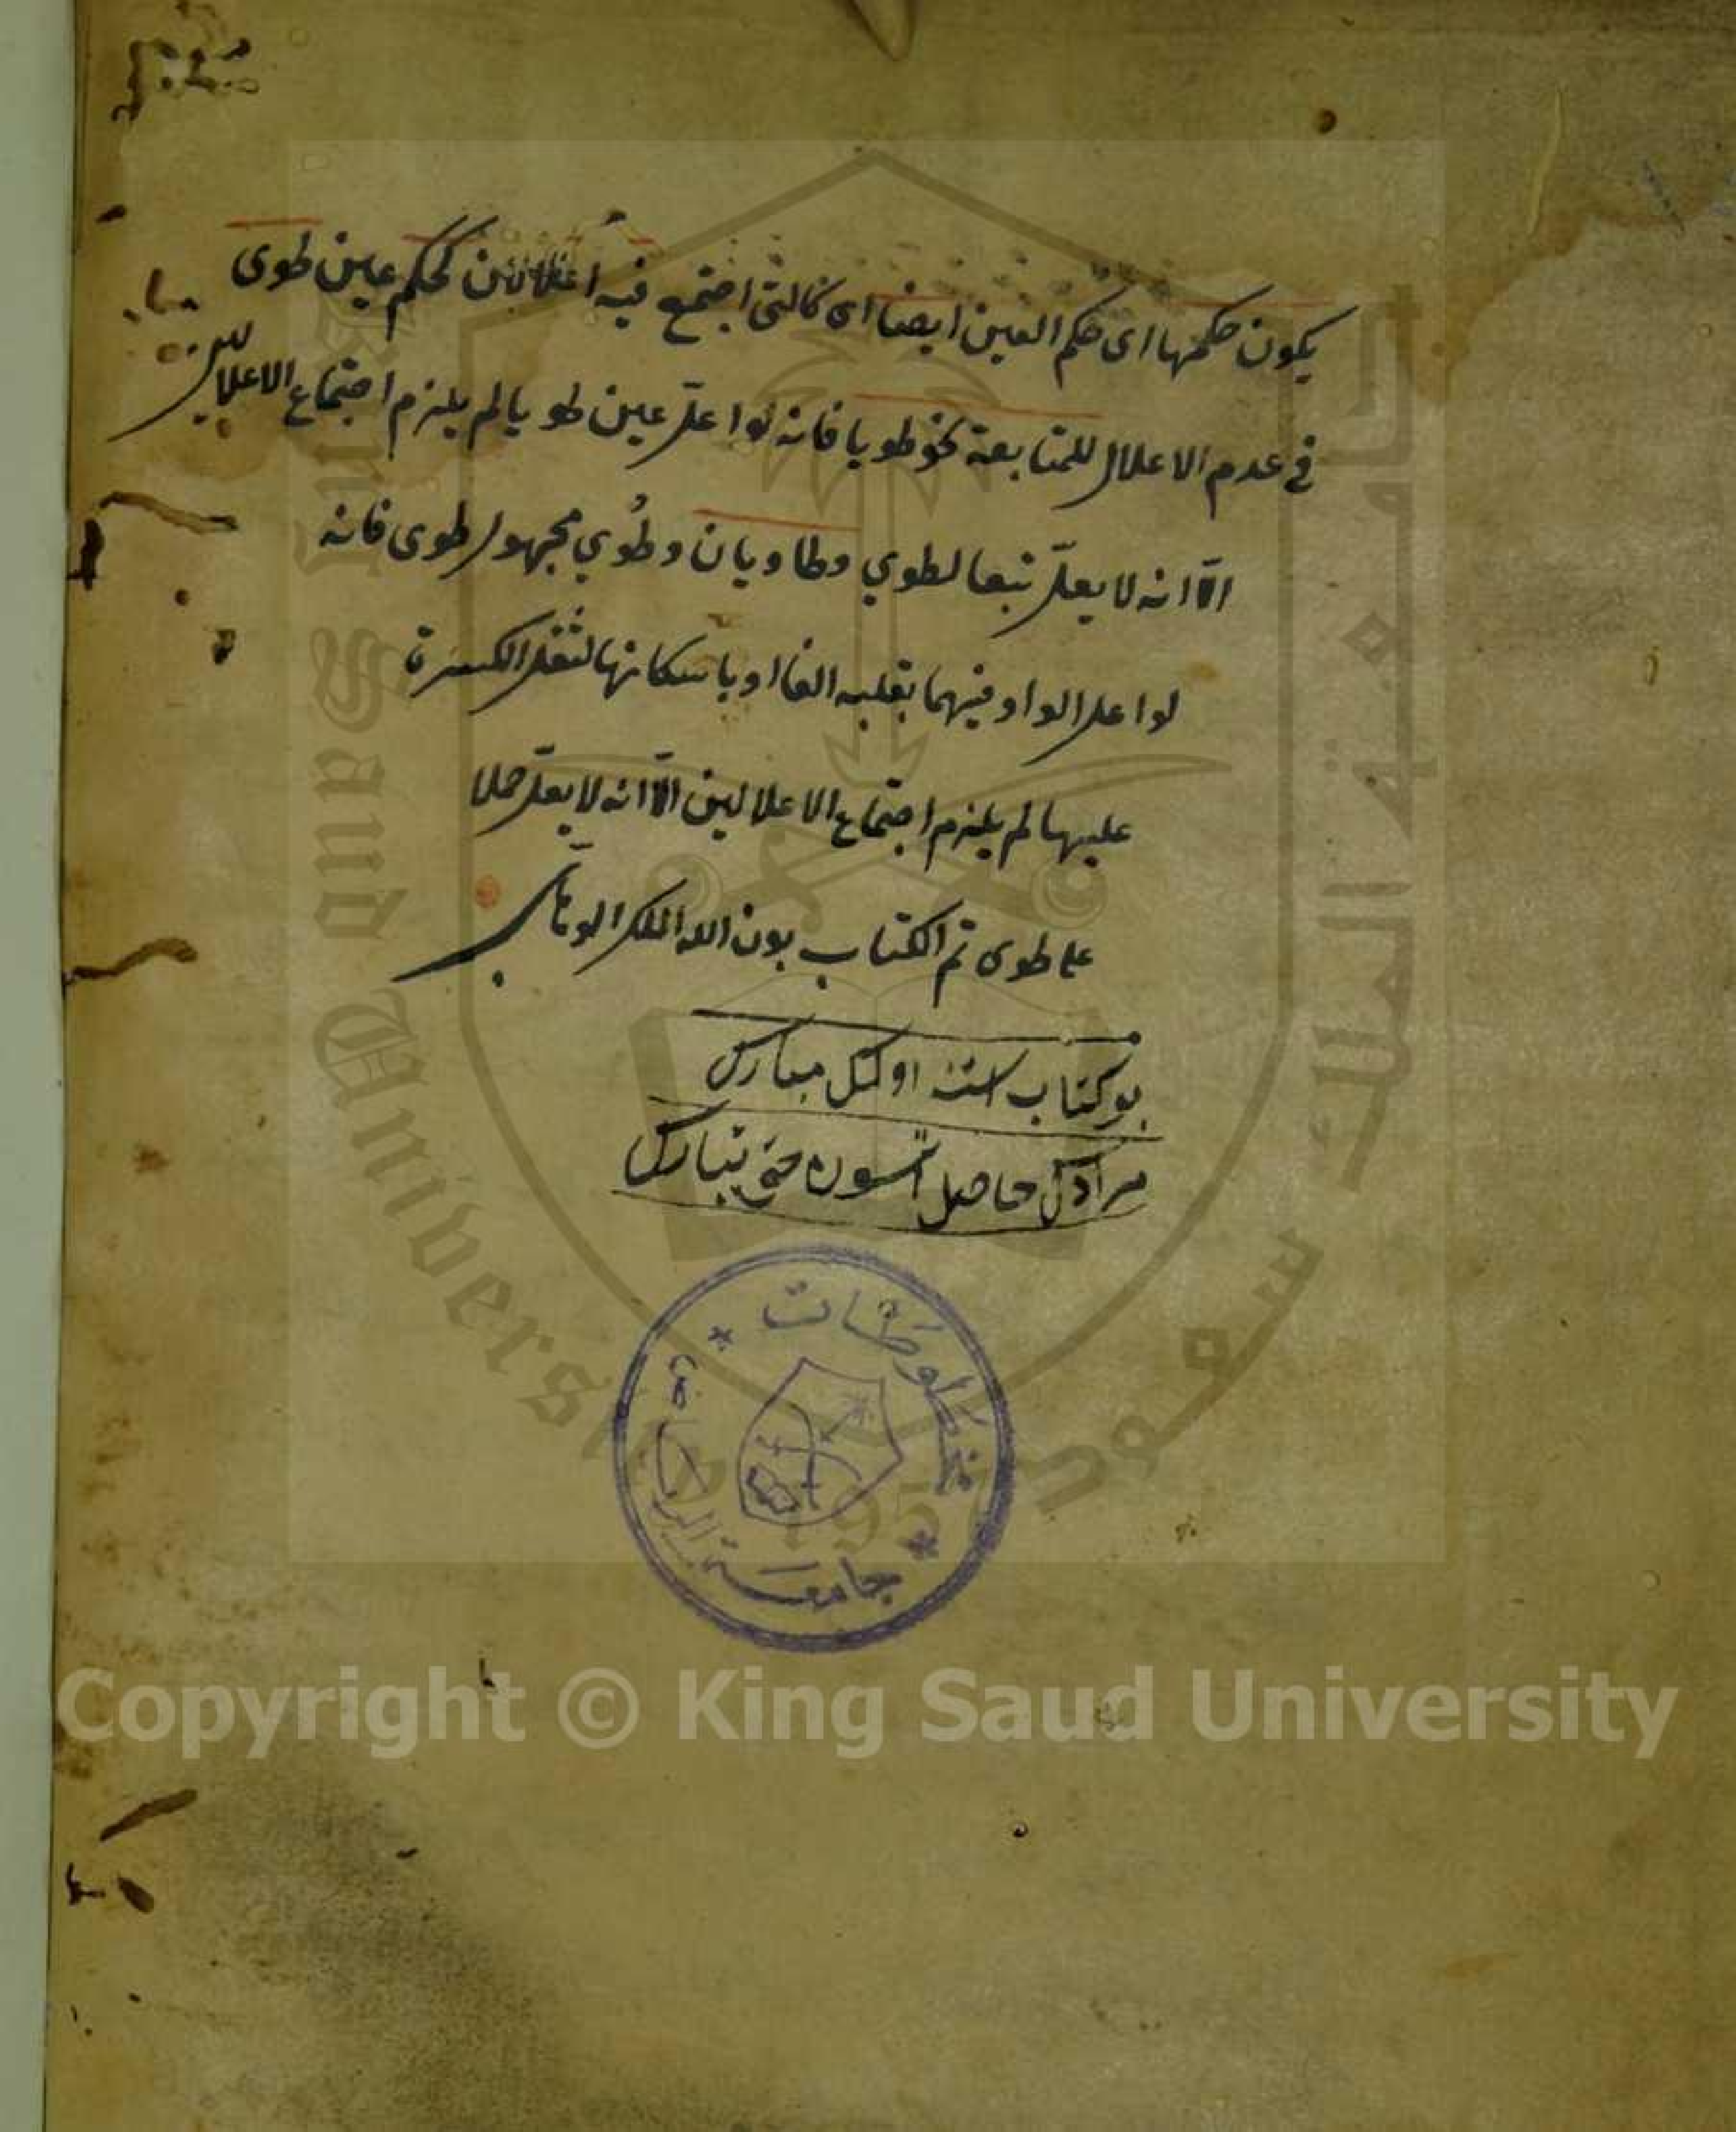 يكون حكمها اى حكم العين ايضا اى كالتى اجتمع فيه اعلالين كحكم عين طوى
فى عدم الاعلال للمتابعة نحو طويا فانه لو اعلّ عين طويا لم يلزم اجتماع الاعلالين
الاّ انه لا يعلّ تبعا لطوي وطاويان وطُوي مجهول طوى فانه
لو اعل الواو فيهما بقلبه الفا او باسكانها لثقل الكسرة
عليها لم يلزم اجتماع الاعلالين الاّ انه لا يعلّ حملا
على طوى تم الكتاب بون الله الملك الوهّاب
بو كتاب اولسك مبارك
مرادك حاصل حق تبارك
مخطوطات
جامعة الرياض
جامعة الملك سعود
King Saud University
1957
Copyright © King Saud University